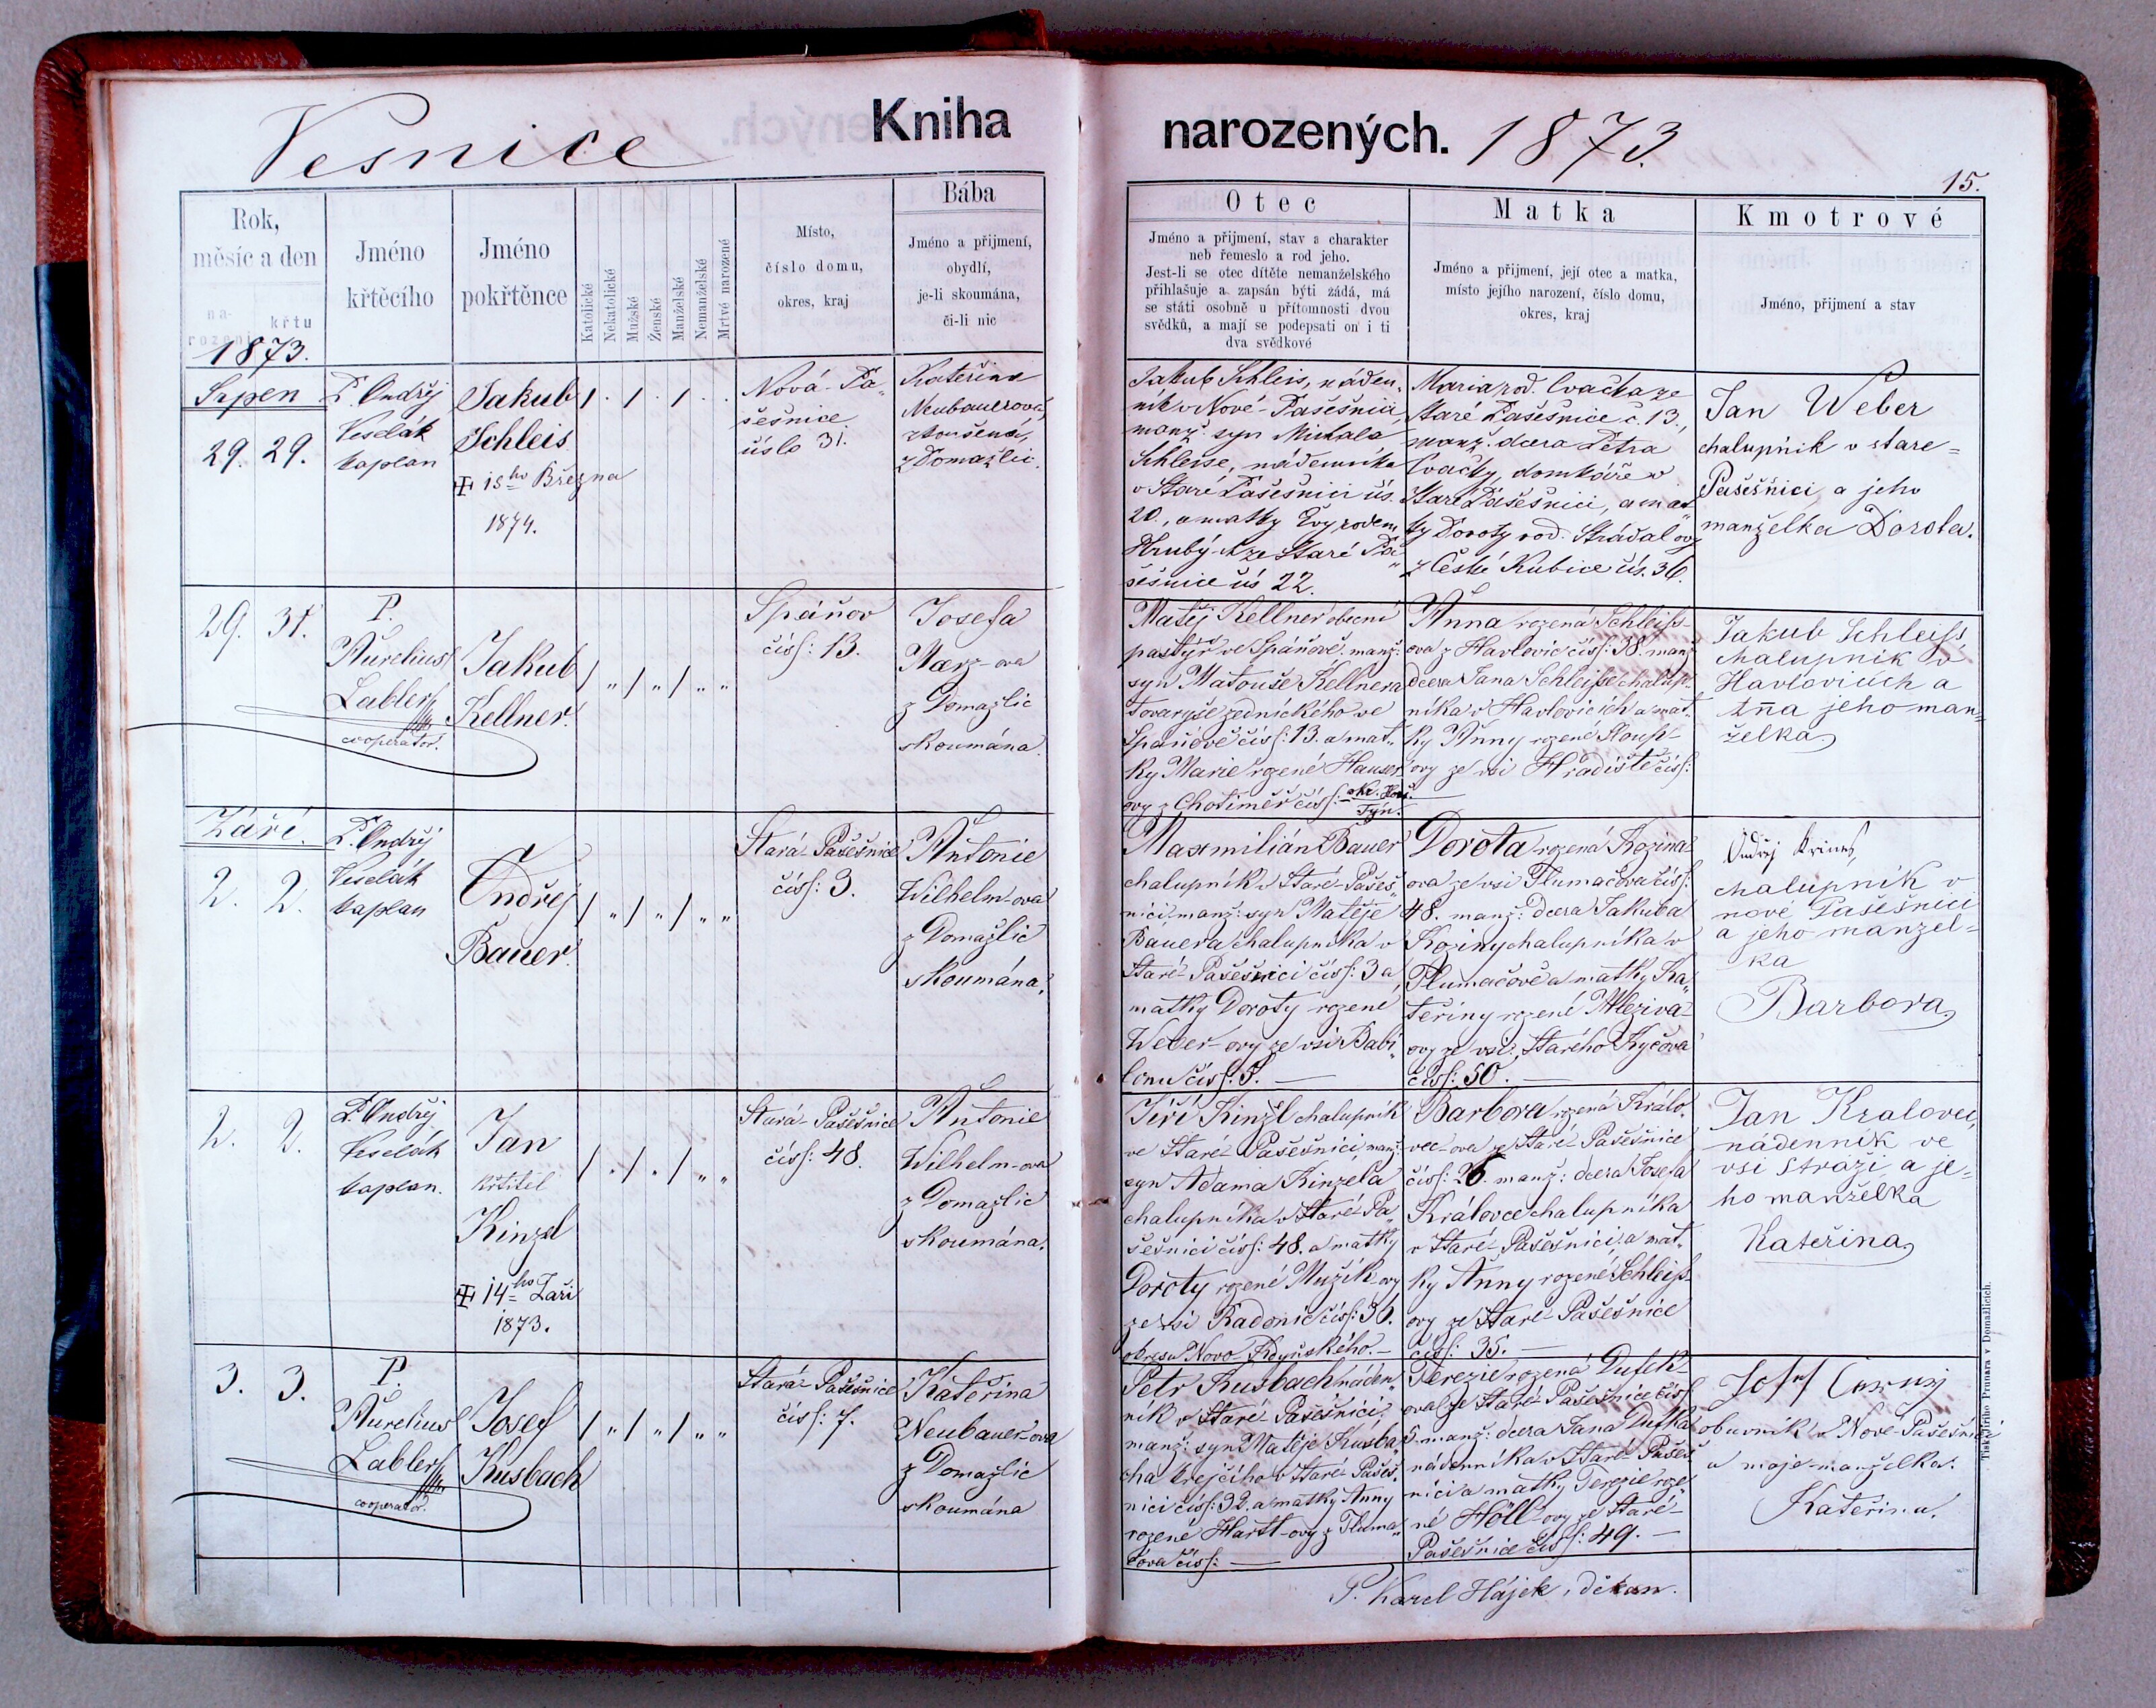 Vesnice
Kniha
narozených. 1873.
15.
Rok,
měsíc a den
na-
rození
křtu
1873.
Jméno
křtěcího
Jméno
pokřtěnce
Katolické
Nekatolické
Mužské
Ženské
Manželské
Nemanželské
Mrtvé narozené
Místo,
číslo domu,
okres, kraj
Bába
Jméno a přijmení,
obydlí,
je-li skoumána,
či-li nic
Otec
Jméno a přijmení, stav a charakter
neb řemeslo a rod jeho.
Jest-li se otec dítěte nemanželského
přihlašuje a zapsán býti žádá, má
se státi osobně u přítomnosti dvou
svědků, a mají se podepsati on i ti
dva svědkové
Matka
Jméno a přijmení, její otec a matka,
místo jejího narození, číslo domu,
okres, kraj
Kmotrové
Jméno, přijmení a stav
Srpen
29. 29.
P. Ondřej
Veselák
kaplan
Jakub
Schleis
15ho Března
1874.
Nová-Pa„
šešnice
číslo 31.
Kateřina
Neubauerová,
zkoušená,
z Domažlic.
Jakub Schleis, náden„
ník v Nové-Pašešnici,
manž. syn Michala
Schleise, nádenníka
v Staré Pašešnici čís.
20., a matky Evy rodem
Hrubý ze Staré Pa„
šešnice čís 22.
Maria rod. Cvačka ze
Staré Pašešnice č. 13.,
manž. dcera Petra
Cvačky, domkáře v
Staré Pašešnici, a mat„
ky Doroty rod. Strádalovy
z České Kubice čís. 36.
Jan Weber
chalupník v stare=
Pašešnici a jeho
manželka Dorota.
29. 31.
P.
Aurelius
Labler
cooperator.
Jakub
Kellner.
Spáňov
čísl: 13.
Josefa
Marz-ova
z Domažlic
skoumána.
Matěj Kellner obecní
pastýř ve Spáňově. manž:
syn Matouše Kellnera
tovaryše zednického ve
Spáňově čísl: 13. a mat„
ky Marie rozené Hauser„
ovy z Chotiměř čísl: ok. Horš.
Týn.
Anna rozená Schleiss-
ova z Havlovic čísl: 38. manž
dcera Jana Schleisse chalup„
níka v Havlovicích a mat„
ky Anny rozené Stoup-
ovy ze vsi Hradiště čísl:
Jakub Schleiss
chalupník v
Havlovicích a
Anna jeho man=
želka
Září.
2. 2.
P. Ondřej
Veselák
kaplan
Ondřej
Bauer.
Stará-Pašešnice
čísl: 3.
Antonie
Wilhelm-ova
z Domažlic
skoumána.
Maxmilián Bauer
chalupník v Staré-Pašeš„
nici manž: syn Matěje
Bauera chalupníka v
Staré-Pašešnici čísl: 3 a
matky Doroty rozené
Weber-ovy ze vsi Babi„
lonu čísl: 5.
Dorota rozená Kozina
ova ze vsi Tlumačova čísl:
48. manž: dcera Jakuba
Koziny chalupníka v
Tlumačově a matky Ka„
teřiny rozené Mleziva-
ovy ze vsi, Starého Kyčova
čísl: 50.
Ondřej
chalupník v
nové Pašešnici
a jeho manžel=
ka
Barbora
2. 2.
P. Ondřej
Veselák
kaplan.
Jan
křtitel
Kinzl
14ho Září
1873.
Stará-Pašešnice
čísl: 48.
Antonie
Wilhelm-ova
z Domažlic
skoumána.
Jiří Kinzl chalupník
ve Staré-Pašešnici, manž:
syn Adama Kinzela
chalupníka v Staré-Pa„
šešnici čísl: 48. a matky
Doroty rozené Mužík-ovy
ze vsi Radonic čísl: 36.
okresu Novo-Kdyňského.
Barbora rozená Králo„
vec-ova ze Staré-Pašešnice
čísl: 26. manž: dcera Josefa
Královce chalupníka
v Staré-Pašešnici a mat„
ky Anny rozené Schleiss
ovy ze Staré-Pašešnice
čísl: 35.
Jan Kralovec,
nádenník ve
vsi Stráži a je=
ho manželka
Kateřina
3. 3.
P.
Aurelius
Labler
cooperator.
Josef
Kusbach
Stará-Pašešnice
čísl: 7.
Kateřina
Neubauer-ova
z Domažlic
skoumána
Petr Kusbach náden„
ník v Staré Pašešnici,
manž: syn Matěje Kusba„
cha krejčího v Staré Pašeš„
nici čísl: 32. a matky Anny
rozené Hartl-ovy z Tluma„
čova čísl:
Terezie rozená Dufek-
ova ze Staré-Pašešnice čísl
5. manž: dcera Jana Dufka
nádenníka v Staré Pašeš„
nici a matky Terezie roze„
né Höll-ovy ze Staré-
Pašešnice čísl: 49.
Josef Černý
obuvník v Nové-Pašešnici
a moje manželka
Kateřina.
P. Karel Hájek, děkan.
Tisk Jiřího Prunara v Domažlicích.